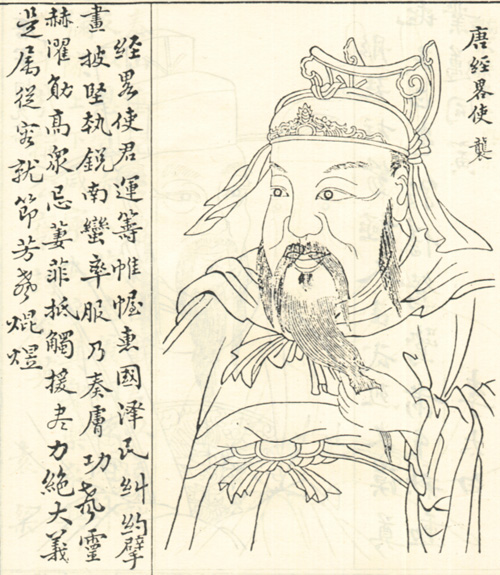 唐經畧使 龔
經畧使君運籌帷幄惠國澤民糾約擘
畫披堅執銳南蠻率服乃奏膚功聲靈
赫濯勛高衆忌萋菲抵觸援尽力絕大義
是属從容就節芳聲焜煌